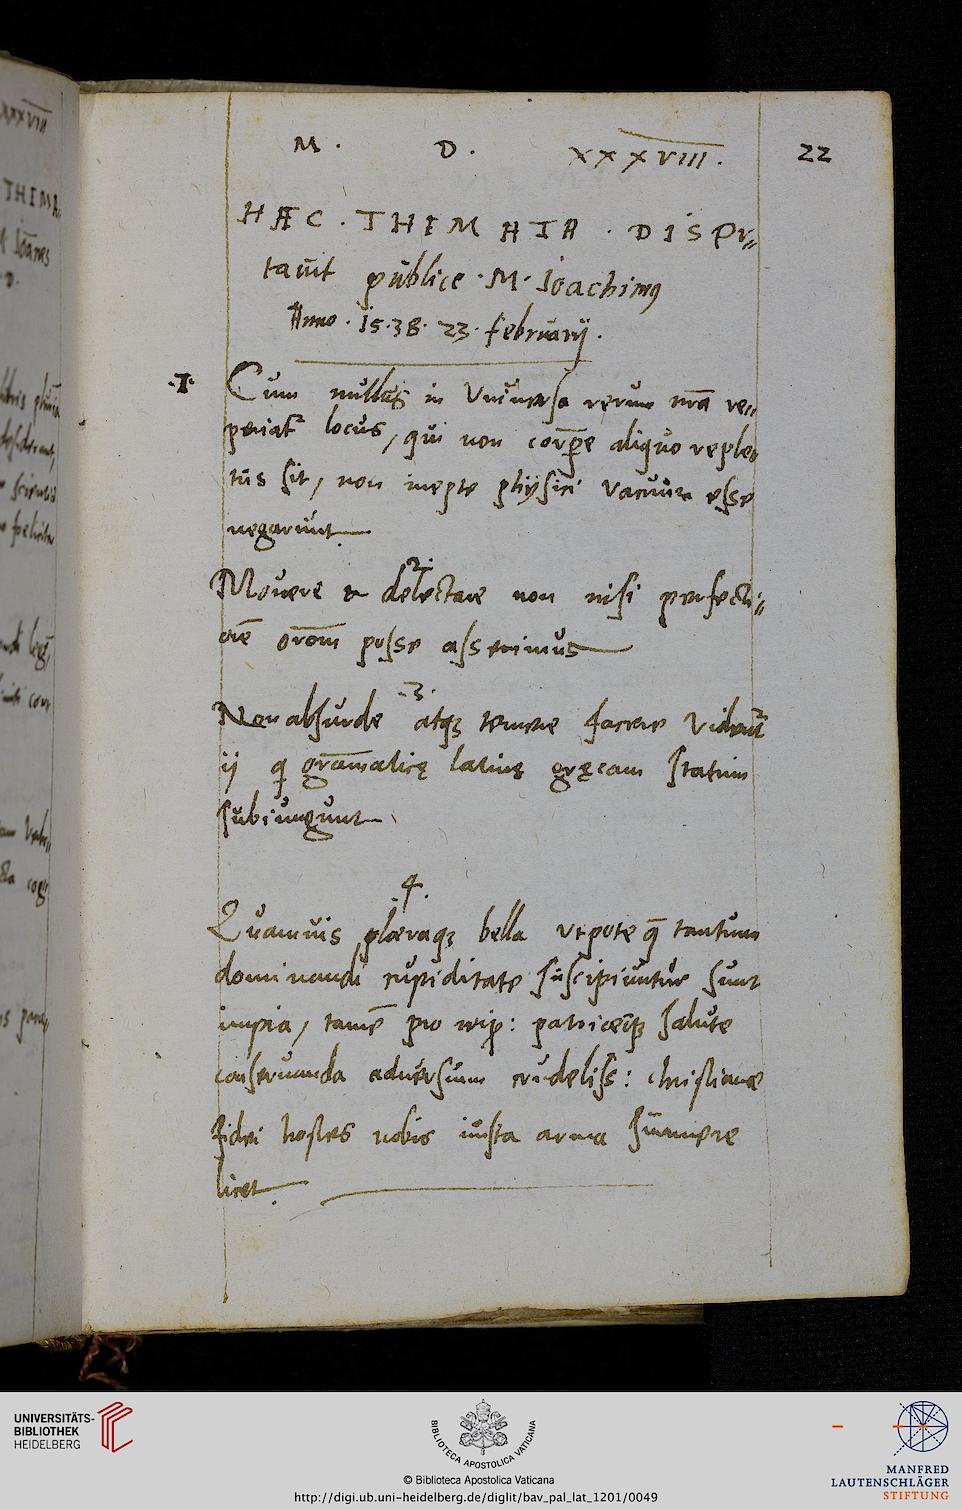 M. D. XXXVIII. 22
HÆC. THEMATA. DISPV=
tauit publice. M. Ioachimꝰ
Anno. 15.38. 23. februarij.
.I. Cum nullus in Vniuersa rerum nr̃a re=
periat᷑ locus, qui non corꝑe aliquo reple
tus sit, non inepte physici vacuum esse
negarunt
.2.
Mouere et delectare non nisi perfecti=
orē orōm posse asserimus
.3.
Non absurde atqꝫ temere facere Videnꞇ᷑
ij q gram̄aticę latinę gręcam statim
subiungunt
.4.
Quamuis pleraqꝫ bella vtpote q̄ tantum
dominandi cupiditate suscipiuntur sunt
impia, tamē pro reip: patriæqꝫ salute
conseruanda aduersum crudeliss: christianæ
fidei hostes nobis iusta arma sumere
licet
XXXVIII
THEMA
Ioānes
D.
felicita
cogi
UNIVERSITÄTS-
BIBLIOTHEK
HEIDELBERG
BIBLIOTECA APOSTOLICA VATICANA
© Biblioteca Apostolica Vaticana
http://digi.ub.uni-heidelberg.de/diglit/bav_pal_lat_1201/0049
MANFRED
LAUTENSCHLÄGER
STIFTUNG